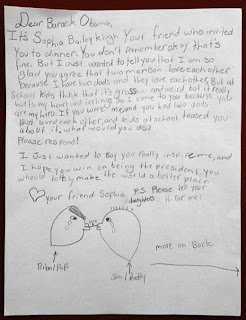 Dear Barack Obama,
It's Sophia Bailey Klugh. Your friend who invited
you to dinner. You don't remember okay that's
fine. But I just wanted to tell you that I am so
glad you agree that two men can love each other
because I have two dads and they love each other. But at
school kids think that it's gross and weird but it really
hurts my heart and feelings. So I come to you because you
are my hero. If you were me and you had two dads
that loved each other, and kids at school teased you
about it, what would you do?
Please respond!
I just wanted to say you really inspire me, and
I hope you win on being the president. You
would totally make the world a better place.
your friend Sophia
P.S. Please tell your
daughters Hi for me!
more on Back